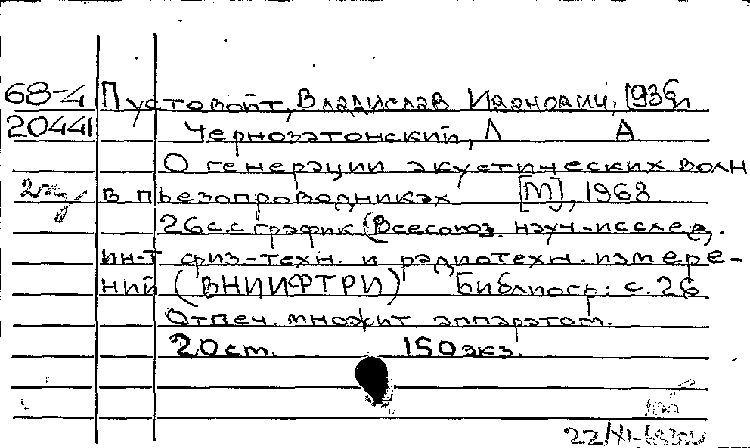 68-4 Пустовойт, Владислав Иванович, 1936 г
20441 Чернозатонский, Л А
О генерации акустических волн
2 в пьезопроводниках [М], 1968
26 с. с график (Всесоюз. науч.-исслед.
ин-т физ-техн. и радиотехн. измере-
ний (ВНИИФТРИ) Библиогр: с. 26
Отпеч. множит аппаратом.
20 ст. 150 экз.
22/XI-68